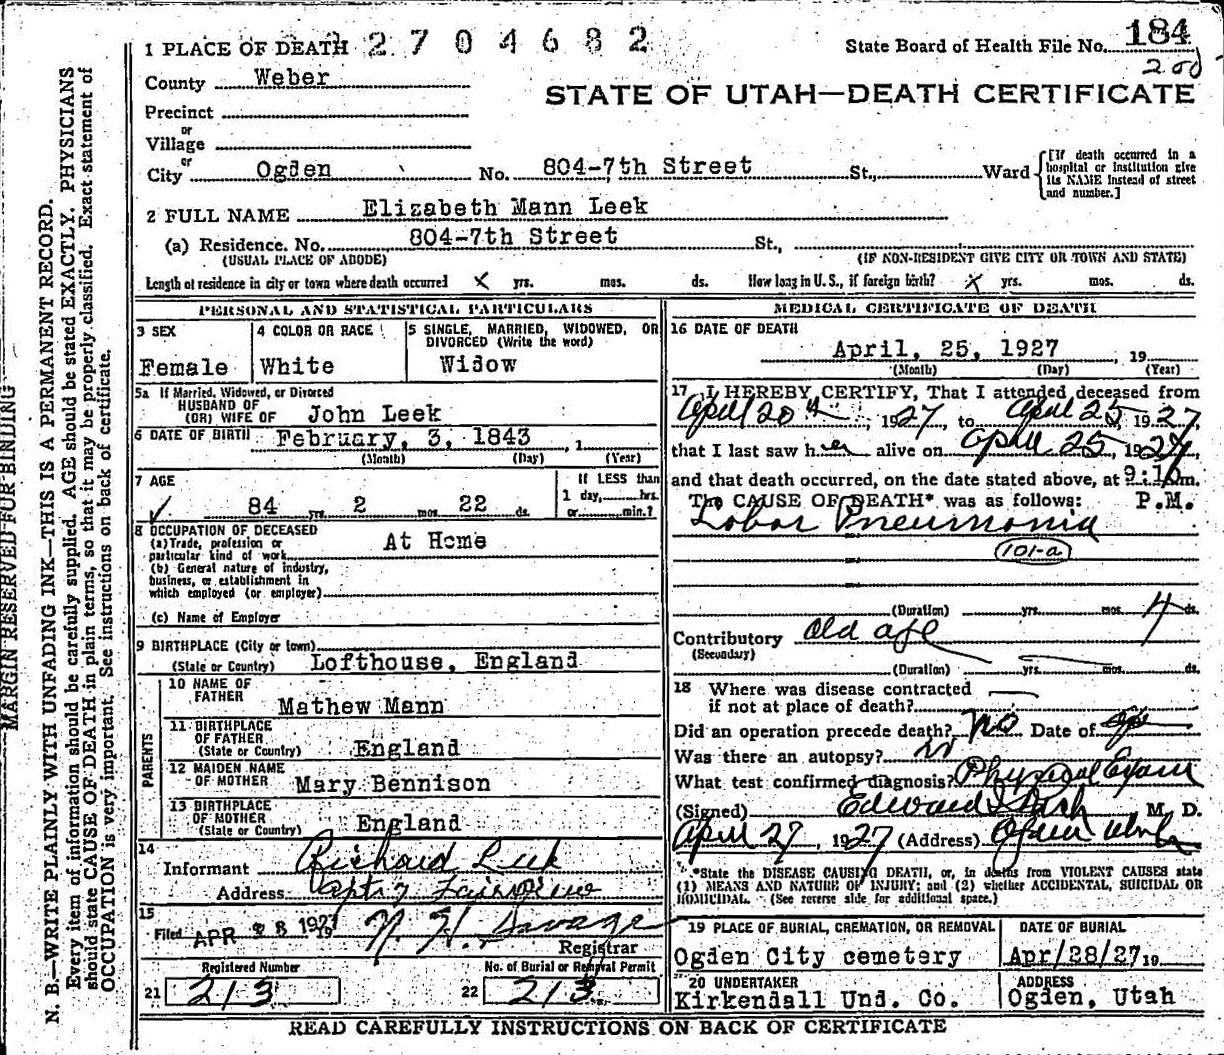 1 PLACE OF DEATH 2704682
State Board of Health File No. 184
200
County Weber
STATE OF UTAH—DEATH CERTIFICATE
Precinct
or
Village
or
City Ogden No. 804-7th Street St., Ward
[If death occurred in a hospital or institution give its NAME instead of street and number.]
2 FULL NAME Elizabeth Mann Leek
(a) Residence. No. 804-7th Street St.,
(USUAL PLACE OF ABODE) (IF NON-RESIDENT GIVE CITY OR TOWN AND STATE)
Length of residence in city or town where death occurred X yrs. mos. ds. How long in U. S., if foreign birth? X yrs. mos. ds.
PERSONAL AND STATISTICAL PARTICULARS
3 SEX
Female
4 COLOR OR RACE
White
5 SINGLE, MARRIED, WIDOWED, OR
DIVORCED (Write the word)
Widow
5a If Married, Widowed, or Divorced
HUSBAND OF
(OR) WIFE OF John Leek
6 DATE OF BIRTH February, 3, 1843, 1
(Month) (Day) (Year)
7 AGE
84 yrs. 2 mos. 22 ds.
If LESS than
1 day, hrs.
or min.?
8 OCCUPATION OF DECEASED
(a) Trade, profession or
particular kind of work At Home
(b) General nature of industry,
business, or establishment in
which employed (or employer)
(c) Name of Employer
9 BIRTHPLACE (City or town)
(State or Country) Lofthouse, England
PARENTS
10 NAME OF
FATHER Mathew Mann
11 BIRTHPLACE
OF FATHER
(State or Country) England
12 MAIDEN NAME
OF MOTHER Mary Bennison
13 BIRTHPLACE
OF MOTHER
(State or Country) England
14
Informant Richard Leek
Address
15
Filed APR 28 1927 19
N. H. Savage
Registrar
Registered Number
21 213
No. of Burial or Removal Permit
22 213
MEDICAL CERTIFICATE OF DEATH
16 DATE OF DEATH
April, 25, 1927, 19
(Month) (Day) (Year)
17 I HEREBY CERTIFY, That I attended deceased from
April 20th, 1927, to April 25, 1927,
that I last saw her alive on April 25, 1927
and that death occurred, on the date stated above, at 9:10m.
The CAUSE OF DEATH* was as follows: P.M.
Lobar Pneumonia
101-a
(Duration) yrs. mos. 4 ds.
Contributory old age
(Secondary)
(Duration) yrs. mos. ds.
18 Where was disease contracted
if not at place of death?
Did an operation precede death? No Date of
Was there an autopsy? no
What test confirmed diagnosis? Physical Exam
(Signed) Edward M. D.
April 27, 1927 (Address) Ogden Utah
*State the DISEASE CAUSING DEATH, or, in deaths from VIOLENT CAUSES state
(1) MEANS AND NATURE OF INJURY; and (2) whether ACCIDENTAL, SUICIDAL OR
HOMICIDAL. (See reverse side for additional space.)
19 PLACE OF BURIAL, CREMATION, OR REMOVAL
Ogden City cemetery
DATE OF BURIAL
Apr/28/27 19
20 UNDERTAKER
Kirkendall Und. Co.
ADDRESS
Ogden, Utah
READ CAREFULLY INSTRUCTIONS ON BACK OF CERTIFICATE
MARGIN RESERVED FOR BINDING
N. B.—WRITE PLAINLY WITH UNFADING INK—THIS IS A PERMANENT RECORD.
Every item of information should be carefully supplied. AGE should be stated EXACTLY. PHYSICIANS
should state CAUSE OF DEATH in plain terms, so that it may be properly classified. Exact statement of
OCCUPATION is very important. See instructions on back of certificate.